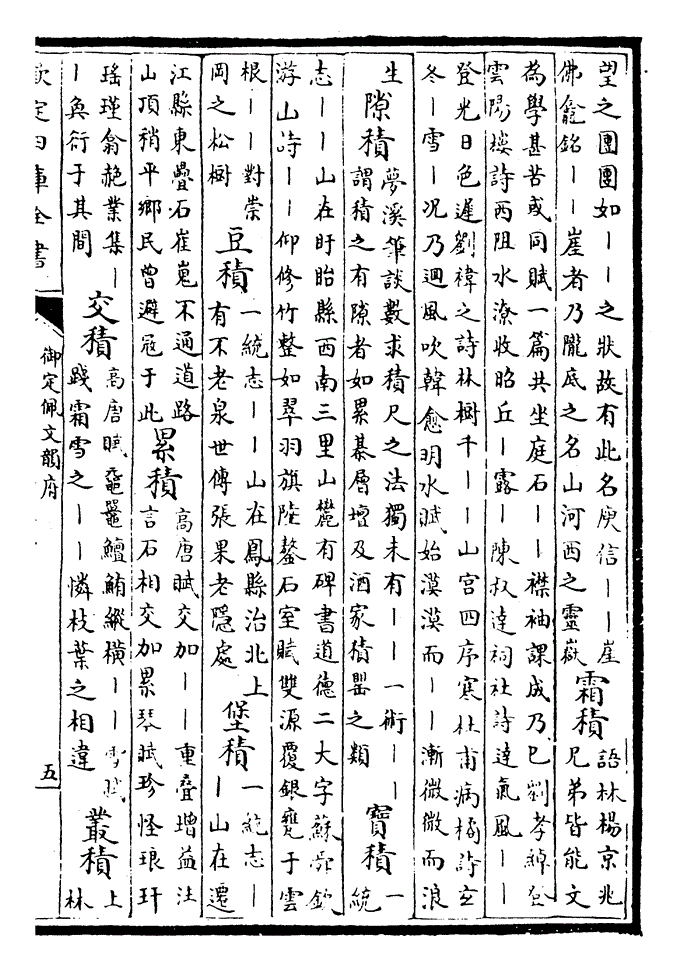 望之團團如丨丨之狀故有此名庾信丨丨崖
佛龕銘丨丨崖者乃隴底之名山河西之靈嶽
霜積
語林楊京兆
兄弟皆能文
為學甚苦或同賦一篇共坐庭石丨丨襟袖課成乃已劉孝綽登
雲陽樓詩西阻水潦收昭丘丨露丨陳叔達祠社詩達氣風丨丨
登光日色遲劉禕之詩林樹千丨丨山宮四序寒杜甫病橘詩玄
冬丨雪丨况乃迴風吹韓愈明水賦始漠漠而丨丨漸微微而浪
生
隙積
夢溪筆談數求積尺之法獨未有丨丨一術丨丨
謂積之有隙者如累棊層壇及酒家積罌之類
寶積
一
統
志丨丨山在盱眙縣西南三里山麓有碑書道德二大字蘇舜欽
游山詩丨丨仰修竹整如翠羽旗陸鏊石室賦雙源覆銀甕于雲
根丨丨對崇
岡之松樹
豆積
一統志丨丨山在鳳縣治北上
有不老泉世傳張果老隱處
堡積
一統志丨
丨山在遷
江縣東疊石崔嵬不通道路
山頂稍平鄉民曾避冦于此
累積
高唐賦交加丨丨重疊增益注
言石相交加累琴賦珍怪琅玕
瑤瑾翕赩業集丨
丨奐衍于其間
交積
高唐賦黿鼉鱣鮪縱橫丨丨雪賦
踐霜雪之丨丨憐枝葉之相違
叢積
上
林
欽定四庫全書
御定佩文韻府
五